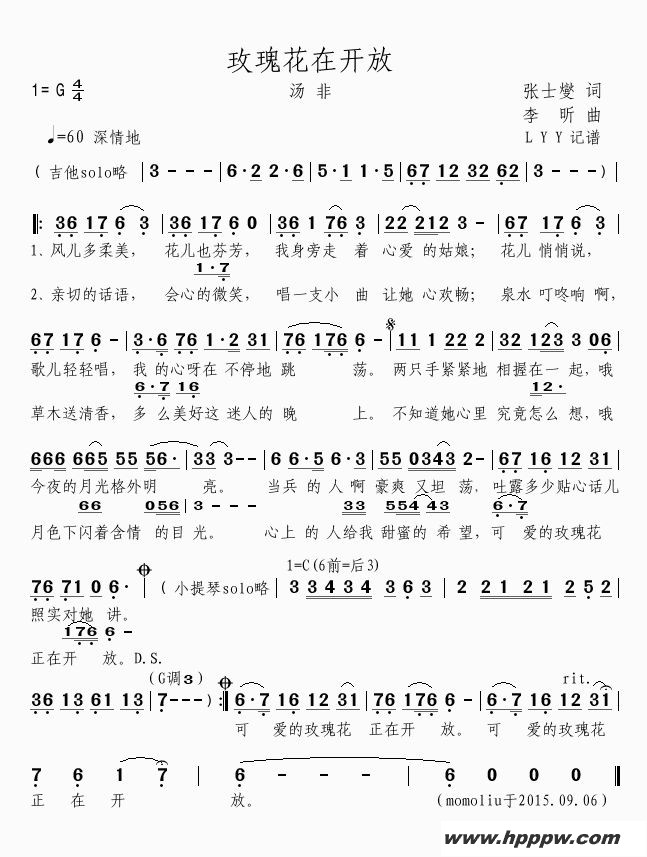 玫瑰花在开放
1= G 4/4 汤 非 张士燮 词
李 昕 曲
♩=60 深情地 L Y Y 记谱
( 吉他solo略 | 3 - - - | 6·2 2·6 | 5·1 1·5 | 67 12 32 62 | 3 - - - ) |
‖: 36 17 6 3 | 36 17 6 0 | 36 1 76 3 | 22 212 3 - | 67 17 6 3 |
1、风儿多柔美， 花儿也芬芳， 我身旁走 着 心爱 的姑娘； 花儿 悄悄说，
1·7
2、亲切的话语， 会心的微笑， 唱一支小 曲 让她 心欢畅； 泉水 叮咚响 啊，
67 17 6 - | 3·6 76 1·2 31 | 76 176 6 - | 11 1 22 2 | 32 123 3 06 |
歌儿轻轻唱， 我 的心呀在 不停地 跳 荡。 两只手紧紧地 相握在一 起，哦
6·7 16 12·
草木送清香， 多 么美好这 迷人的 晚 上。 不知道她心里 究竟怎么 想，哦
666 665 55 56· | 33 3 - - | 6 6·5 6·3 | 55 0343 2 - | 67 16 12 31 |
今夜的月光格外明 亮。 当兵 的 人 啊 豪爽 又坦 荡，吐露多少贴心话儿
66 056 3 33 554 43 6·7
月色下闪着含情 的目 光。 心上 的 人给我 甜蜜的 希 望，可 爱的玫瑰花
1=C(6前=后3)
76 71 0 6· | ( 小提琴solo略 | 33 434 34 3 63 | 2 21 21 2 52 |
照实对她 讲。
176 6 -
正在开 放。D.S.
(G调3) rit.
36 13 61 13 | 7 - - - ) :‖ 6·7 16 12 31 | 76 176 6 - | 6·7 16 12 31 |
可 爱的玫瑰花 正在开 放。可 爱的玫瑰花
7 6 1 7 | 6 - - - | 6 0 0 0 ‖
正 在 开 放。 (momoliu于2015.09.06)
www.hpppw.com